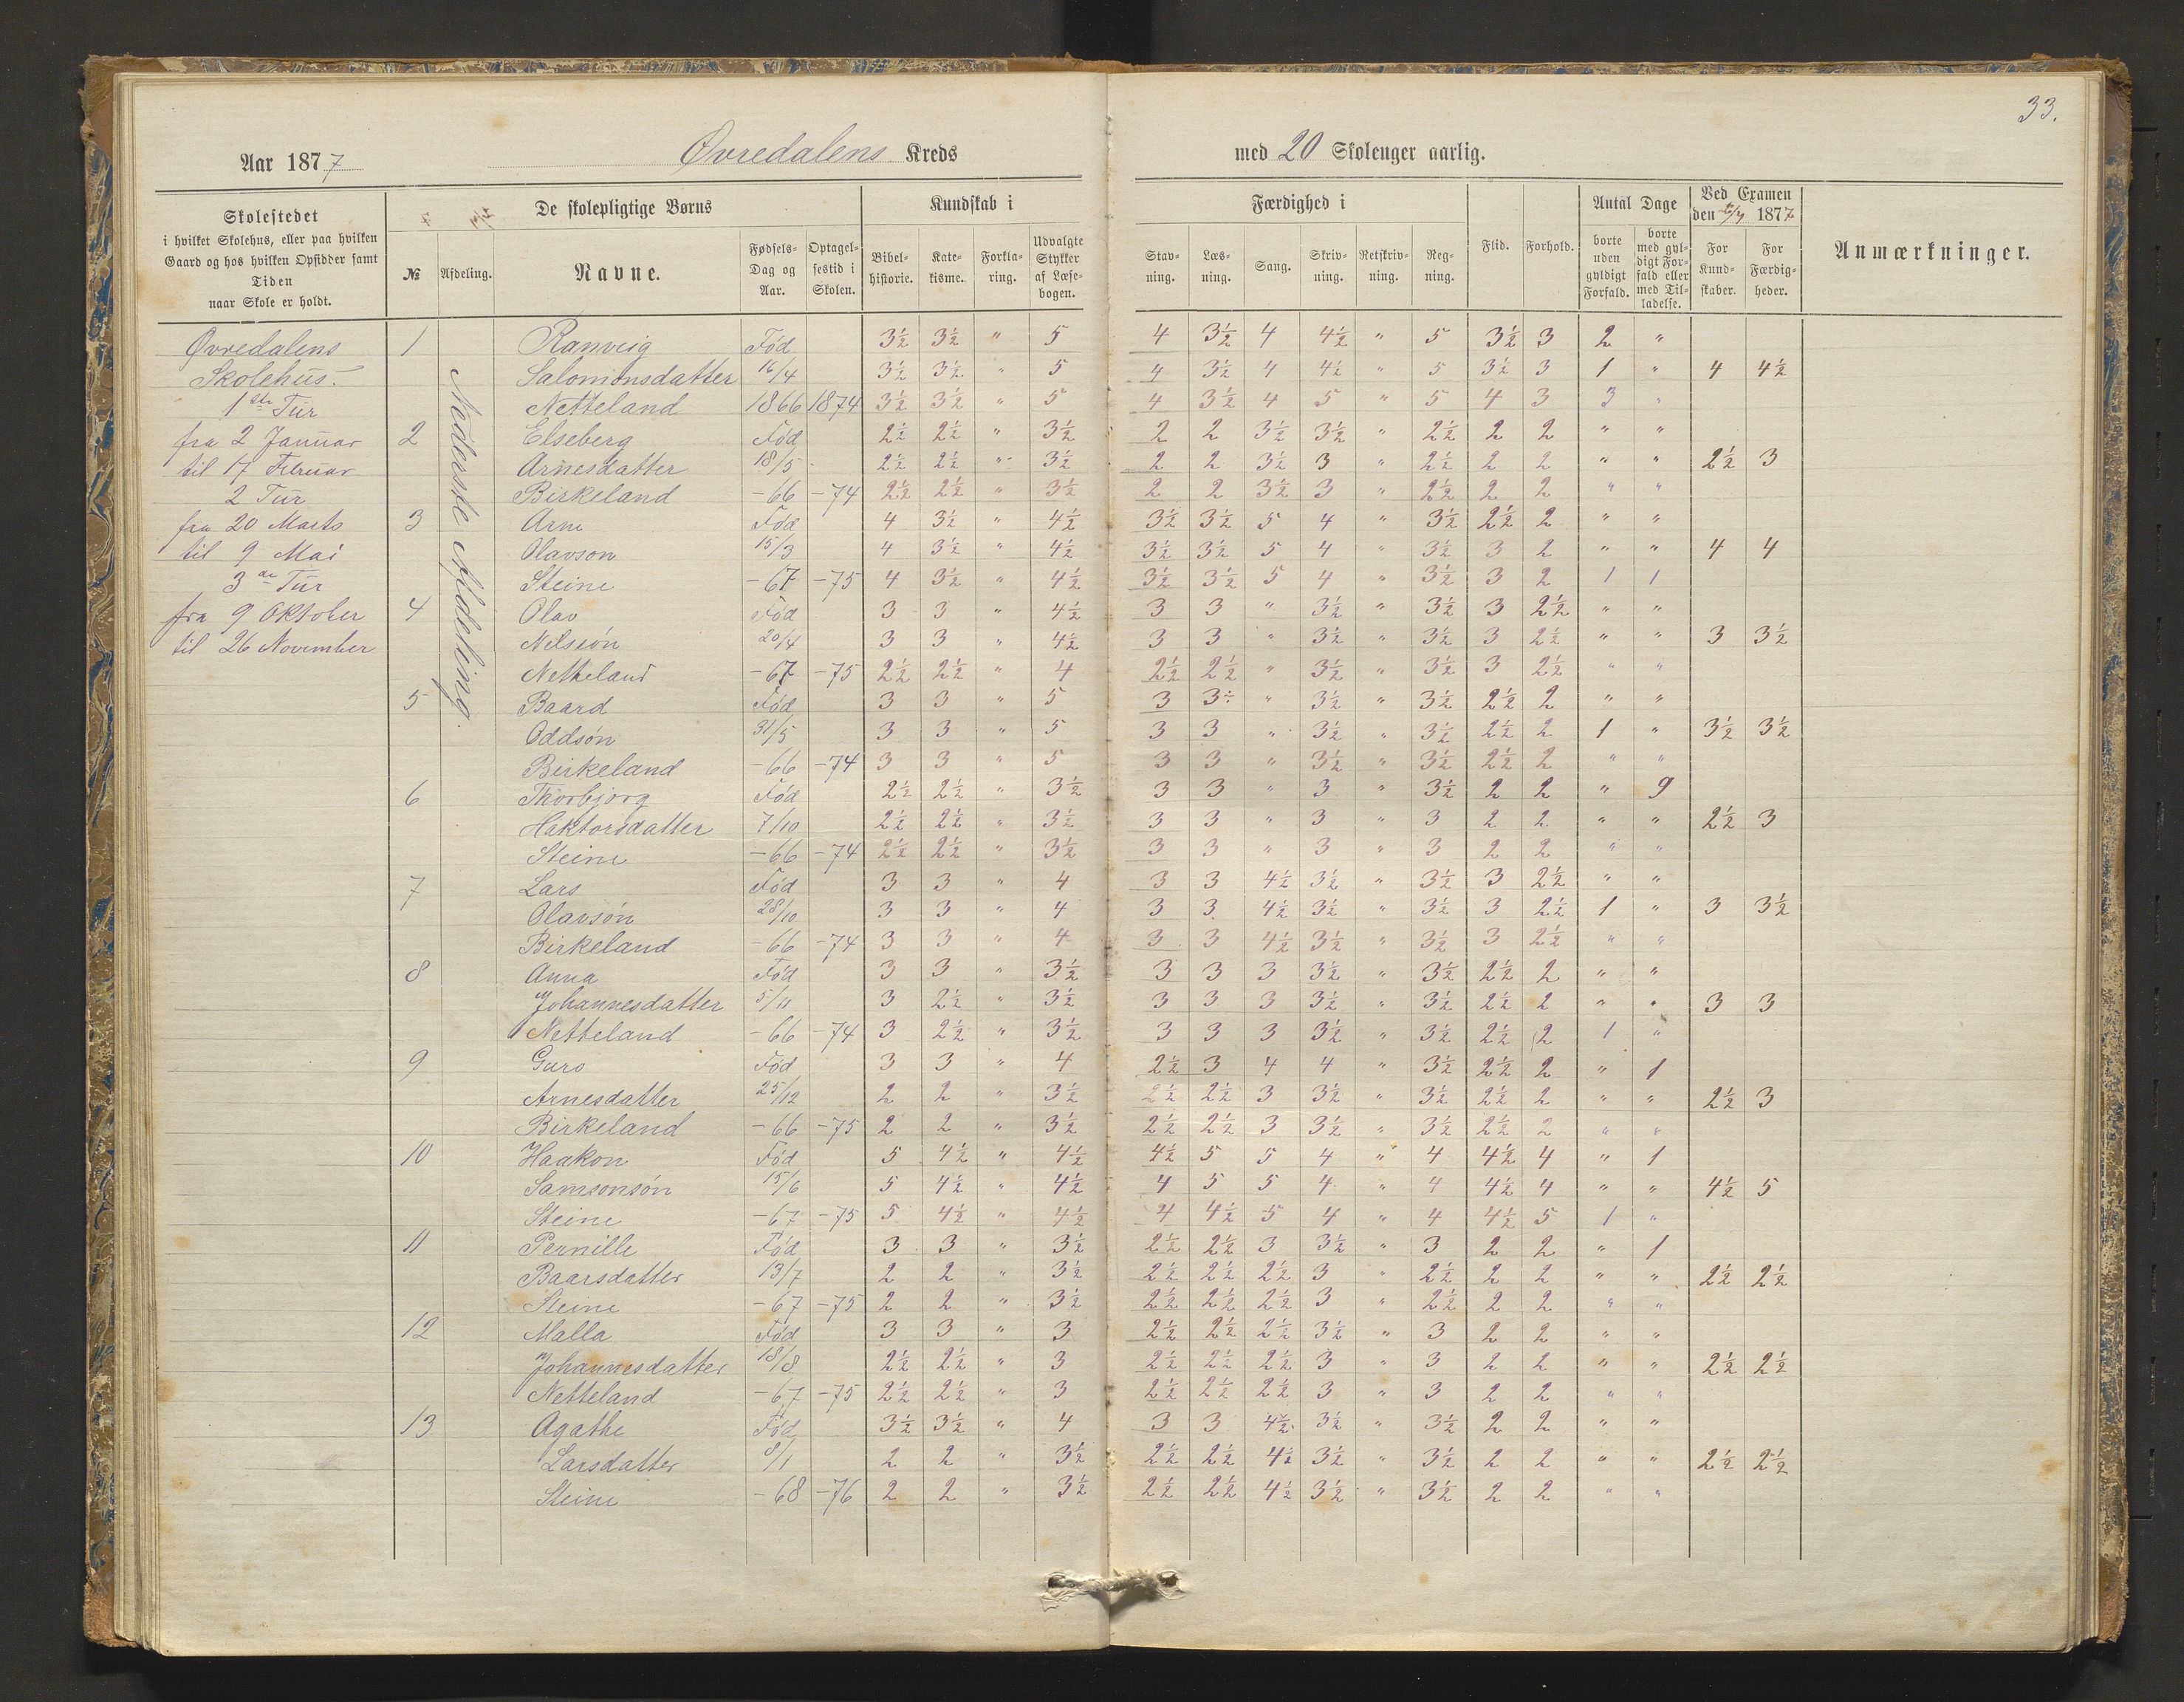 33.
Aar 1877 Øvredalens Kreds med 20 Skoleuger aarlig.
Skolestedet
i hvilket Skolehus, eller paa hvilken
Gaard og hos hvilken Opsidder samt
Tiden
naar Skole er holdt.
De skolepligtige Børns
№ Afdeling. Navne. Fødsels-Dag og Aar. Optagelsestid i Skolen.
Kundskab i
Bibelhistorie. Katekisme. Forklaring. Udvalgte Stykker af Læsebogen.
Færdighed i
Stavning. Læsning. Sang. Skrivning. Retskrivning. Regning.
Flid. Forhold.
Antal Dage
borte uden gyldigt Forfald. borte med gyldigt Forfald eller med Tilladelse.
Ved Examen
den 1877
For Kundskaber. For Færdigheder.
Anmærkninger.
Øvredalens
Skolehus.
1ste Tur
fra 2 Januar
til 17 Februar
2 Tur
fra 20 Marts
til 9 Mai
3de Tur
fra 9 Oktober
til 26 November
Nederste Afdeling.
1 Ranveig Fød 3½ 3½ " 5 4 3½ 4 4½ " 5 3½ 3 2 "
Salomonsdatter 16/4 3½ 3½ " 5 4 3½ 4 4½ " 5 3½ 3 1 " 4 4½
Netteland 1866 1874 3½ 3½ " 5 4 3½ 4 5 " 5 4 3 3 "
2 Elseberg Fød 2½ 2½ " 3½ 2 2 3½ 3½ " 2½ 2 2 " "
Arnesdatter 18/5 2½ 2½ " 3½ 2 2 3½ 3 " 2½ 2 2 " " 2½ 3
Birkeland -66 -74 2½ 2½ " 3½ 2 2 3½ 3 " 2½ 2 2 " "
3 Arne Fød 4 3½ " 4½ 3½ 3½ 5 4 " 3½ 2½ 2 " "
Olavson 15/3 4 3½ " 4½ 3½ 3½ 5 4 " 3½ 3 2 " " 4 4
Steine -67 -75 4 3½ " 4½ 3½ 3½ 5 4 " 3½ 3 2 1 1
4 Olav Fød 3 3 " 4½ 3 3 " 3½ " 3½ 3 2½ " "
Nilssøn 20/4 3 3 " 4½ 3 3 " 3½ " 3½ 3 2½ " " 3 3½
Netteland -67 -75 2½ 2½ " 4 2½ 2½ " 3½ " 3½ 3 2½ " "
5 Baard Fød 3 3 " 5 3 3÷ " 3½ " 3½ 2½ 2 " "
Oddsøn 31/5 3 3 " 5 3 3 " 3½ " 3½ 2½ 2 1 " 3½ 3½
Birkeland -66 -74 3 3 " 5 3 3 " 3½ " 3½ 2½ 2 " "
6 Thorbjorg Fød 2½ 2½ " 3½ 3 3 " 3 " 3½ 2 2 " 9
Haktorsdatter 7/10 2½ 2½ " 3½ 3 3 " 3 " 3 2 2 " " 2½ 3
Steine -66 -74 2½ 2½ " 3½ 3 3 " 3 " 3 2 2 " "
7 Lars Fød 3 3 " 4 3 3 4½ 3½ " 3½ 3 2½ " "
Olavsøn 28/10 3 3 " 4 3 3 4½ 3½ " 3½ 3 2½ 1 " 3 3½
Birkeland -66 -74 3 3 " 4 3 3 4½ 3½ " 3½ 3 2½ " "
8 Anna Fød 3 3 " 3½ 3 3 3 3½ " 3½ 2½ 2 " "
Johannesdatter 5/11 3 2½ " 3½ 3 3 3 3½ " 3½ 2½ 2 " " 3 3
Netteland -66 -74 3 2½ " 3½ 3 3 3 3½ " 3½ 2½ 2 1 "
9 Guro Fød 3 3 " 4 2½ 3 4 4 " 3½ 2½ 2 " 1
Arnesdatter 25/12 2 2 " 3½ 2½ 2½ 3 3½ " 3½ 2½ 2 " " 2½ 3
Birkeland -66 -75 2 2 " 3½ 2½ 2½ 3 3½ " 3½ 2½ 2 " "
10 Haakon Fød 5 4½ " 4½ 4½ 5 5 4 " 4 4½ 4 " 1
Samsonsøn 15/6 5 4½ " 4½ 4 5 5 4 " 4 4½ 4 " " 4½ 5
Steine -67 -75 5 4½ " 4½ 4 4½ 5 4 " 4 4½ 5 1 "
11 Pernille Fød 3 3 " 3½ 2½ 2½ 3 3½ " 3 2 2 " 1
Baarsdatter 13/7 2 2 " 3½ 2½ 2½ 2½ 3 " 2½ 2 2 " " 2½ 2½
Steine -67 -75 2 2 " 3½ 2½ 2½ 2½ 3 " 2½ 2 2 " "
12 Malla Fød 3 3 " 3 2½ 2½ 2½ 3½ " 3 2 2 " "
Johannesdatter 18/8 2½ 2½ " 3 2½ 2½ 2½ 3 " 3 2 2 " " 2½ 2½
Netteland -67 -75 2½ 2½ " 3 2½ 2½ 2½ 3 " 3 2 2 " "
13 Agathe Fød 3½ 3½ " 4 3 3 4½ 3½ " 3½ 2 2 " "
Larsdatter 8/1 2 2 " 3½ 2½ 2½ 4½ 3½ " 3½ 2 2 " " 2½ 2½
Steine -68 -76 2 2 " 3½ 2½ 2½ 4½ 3½ " 3½ 2 2 " "